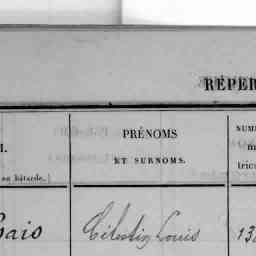 RÉPER
M.
PRÉNOMS
ET SURNOMS.
NUM
m
tric
ou bâtarde.)
Célestin Louis
13